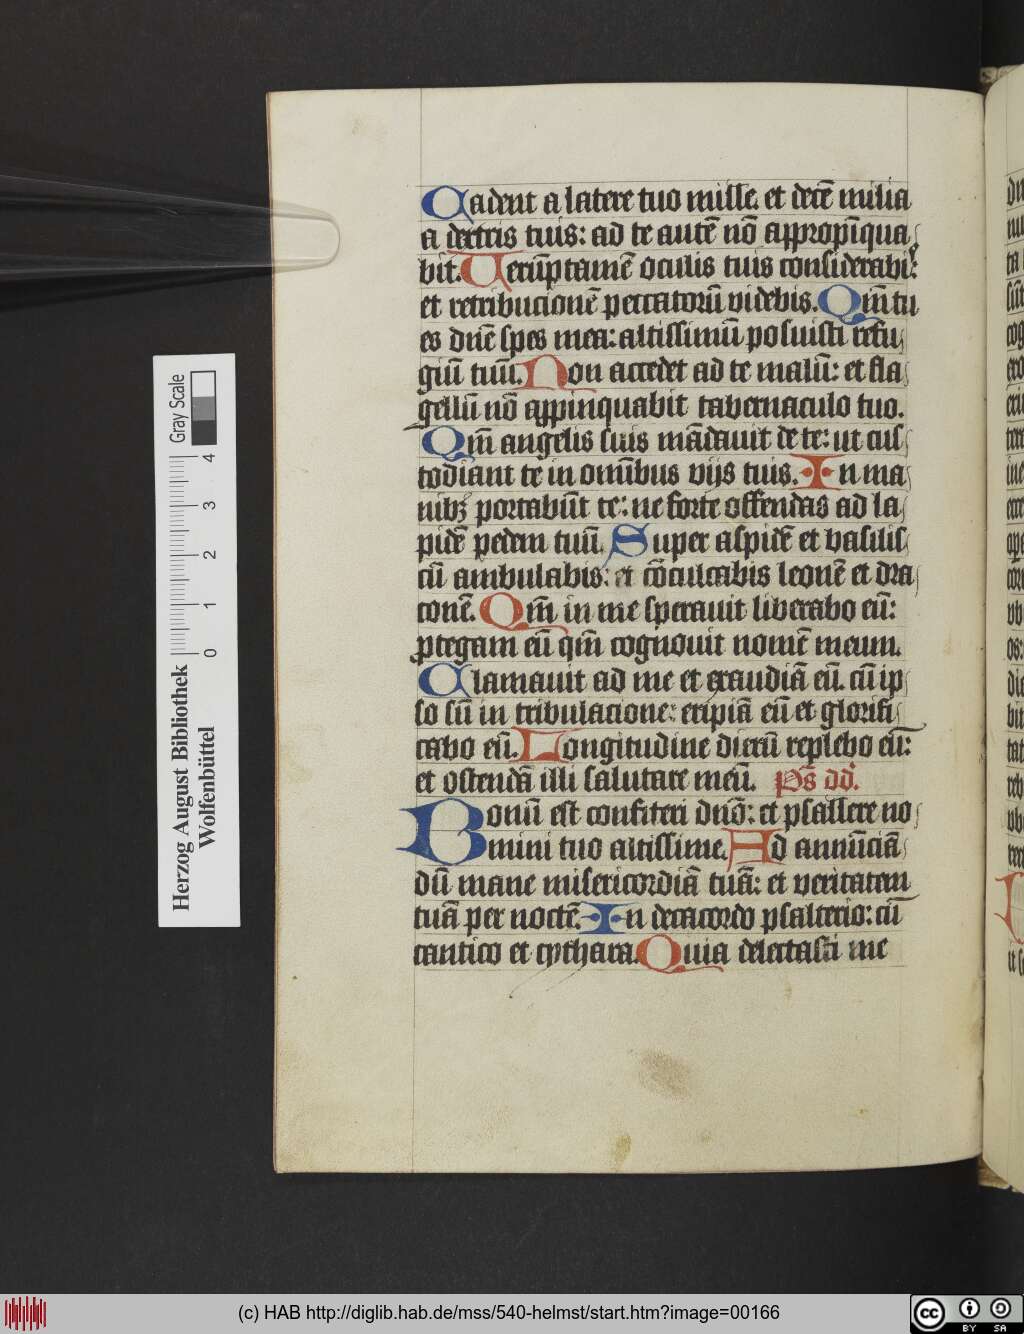 Cadent a latere tuo mille. et decē milia
a dextris tuis: ad te autē nō appropīqua
bit. Uerūptamē oculis tuis considerabis:
et retribucionē peccatorū videbis. Qm̄ tu
es dn̄e spes mea: altissimū posuisti refu
giū tuū. Non accedet ad te malū: et fla
gellū nō appinquabit tabernaculo tuo.
Qm̄ angelis suis mādauit de te: ut cus
todiant te in omībus vijs tuis. In ma
nibꝫ portabūt te: ne forte offendas ad la
pidē pedem tuū. Super aspidē et basilis
cū ambulabis: et cōculcabis leonē et dra
conē. Qm̄ in me sperauit liberabo eū:
ꝓtegam eū qm̄ cognouit nomē meum.
Clamauit ad me et exaudiā eū. cū ip
so sū in tribulacione: eripiā eū et glorifi
cabo eū. Longitudine dierū replebo eū:
et ostendā illi salutare meū. Ps̄ dd.
Bonū est confiteri dn̄o: et psallere no
mini tuo altissime. Ad annūciā
dū mane misericordiā tuā: et veritatem
tuā per noctē. In decacordo psalterio: cū
cantico et cythara. Quia delectasti me
Herzog August Bibliothek
Wolfenbüttel
Gray Scale
0 1 2 3 4
(c) HAB http://diglib.hab.de/mss/540-helmst/start.htm?image=00166
cc BY SA